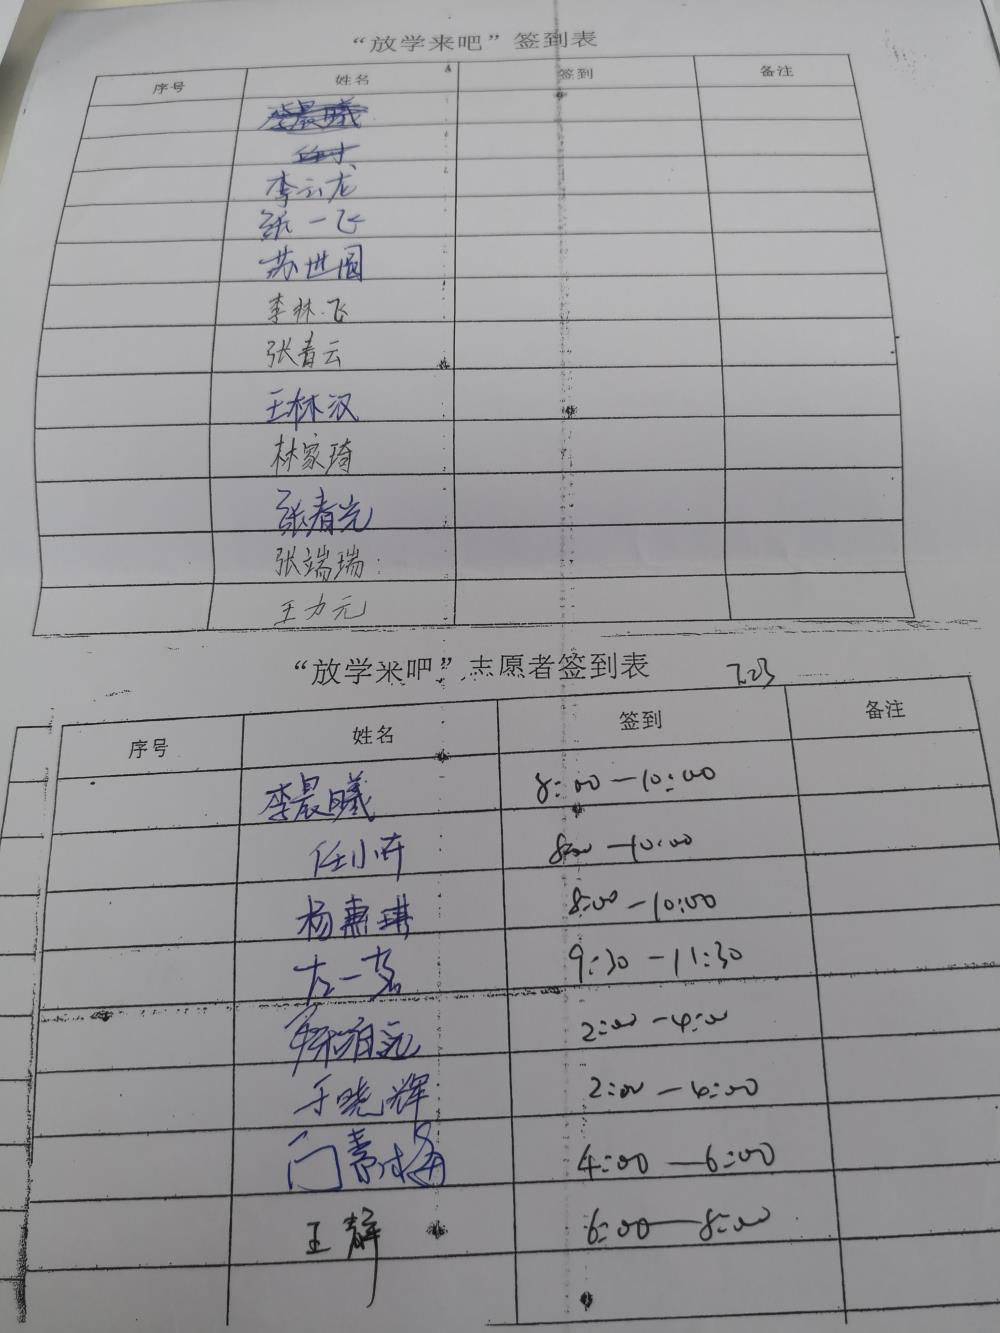 “放学来吧”签到表
序号 姓名 签到 备注
李晨曦
李云龙
张一飞
苏世国
李林飞
张春云
王林汉
林家琦
张春光
张端瑞
王力元
“放学来吧”志愿者签到表 7.23
序号 姓名 签到 备注
李晨曦 8:00-10:00
任小卉 8:00-10:00
杨惠琪 8:00-10:00
左一 9:30-11:30
2:00-4:00
于晓辉 2:00-4:00
门素梅 4:00-6:00
王静 6:00-8:00